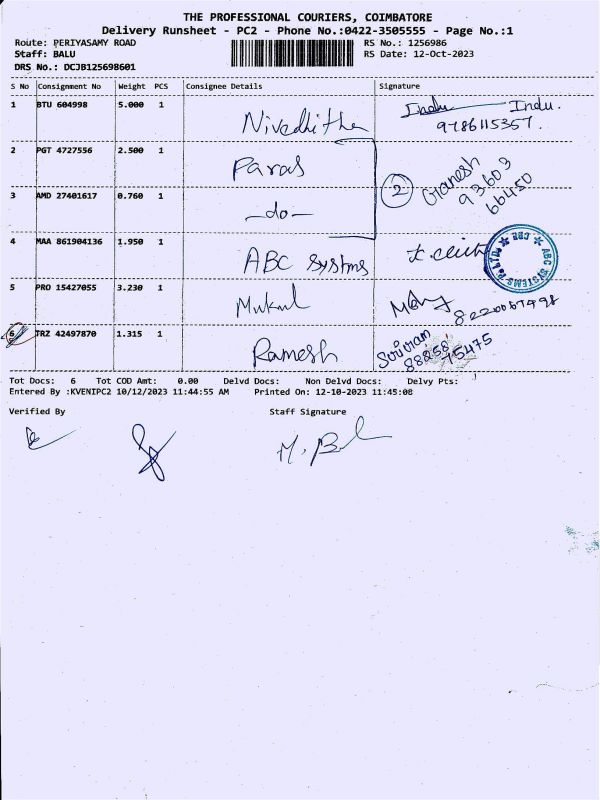 THE PROFESSIONAL COURIERS, COIMBATORE
Delivery Runsheet - PC2 - Phone No.:0422-3505555 - Page No.:1
Route: PERIYASAMY ROAD RS No.: 1256986
Staff: BALU RS Date: 12-Oct-2023
DRS No.: DCJB125698601
S No Consignment No Weight PCS Consignee Details Signature
1 BTU 604998 5.000 1 Nivedhitha Indu Indu.
9786115357.
2 PGT 4727556 2.500 1 Paras
② Ganesh
93603
66450
3 AMD 27401617 0.760 1 -do-
4 MAA 861904136 1.950 1 ABC Systms
ABC SYSTEMS P. LTD. ★ CBE ★
5 PRO 15427055 3.230 1 Mukul
8220067498
6 TRZ 42497870 1.315 1 Ramesh
88858 75475
Tot Docs: 6 Tot COD Amt: 0.00 Delvd Docs: Non Delvd Docs: Delvy Pts:
Entered By :KVENIPC2 10/12/2023 11:44:55 AM Printed On: 12-10-2023 11:45:08
Verified By Staff Signature